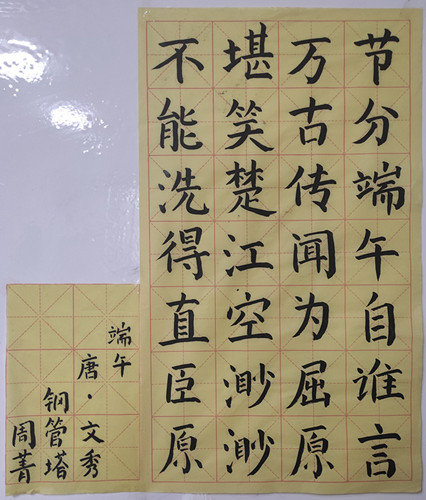 节分端午自谁言
万古传闻为屈原
堪笑楚江空渺渺
不能洗得直臣原
端午
唐·文秀
钢管塔
周菁